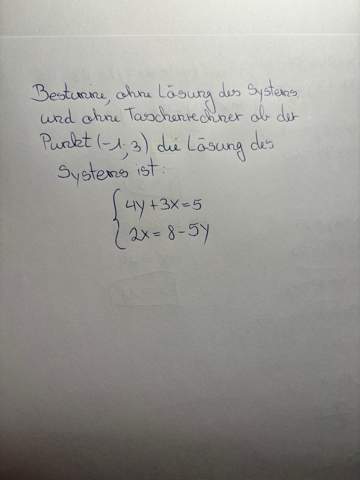 Bestimme, ohne Lösung des Systems
und ohne Taschenrechner ob der
Punkt (-1; 3) die Lösung des
Systems ist:
4y+3x=5
2x=8-5y